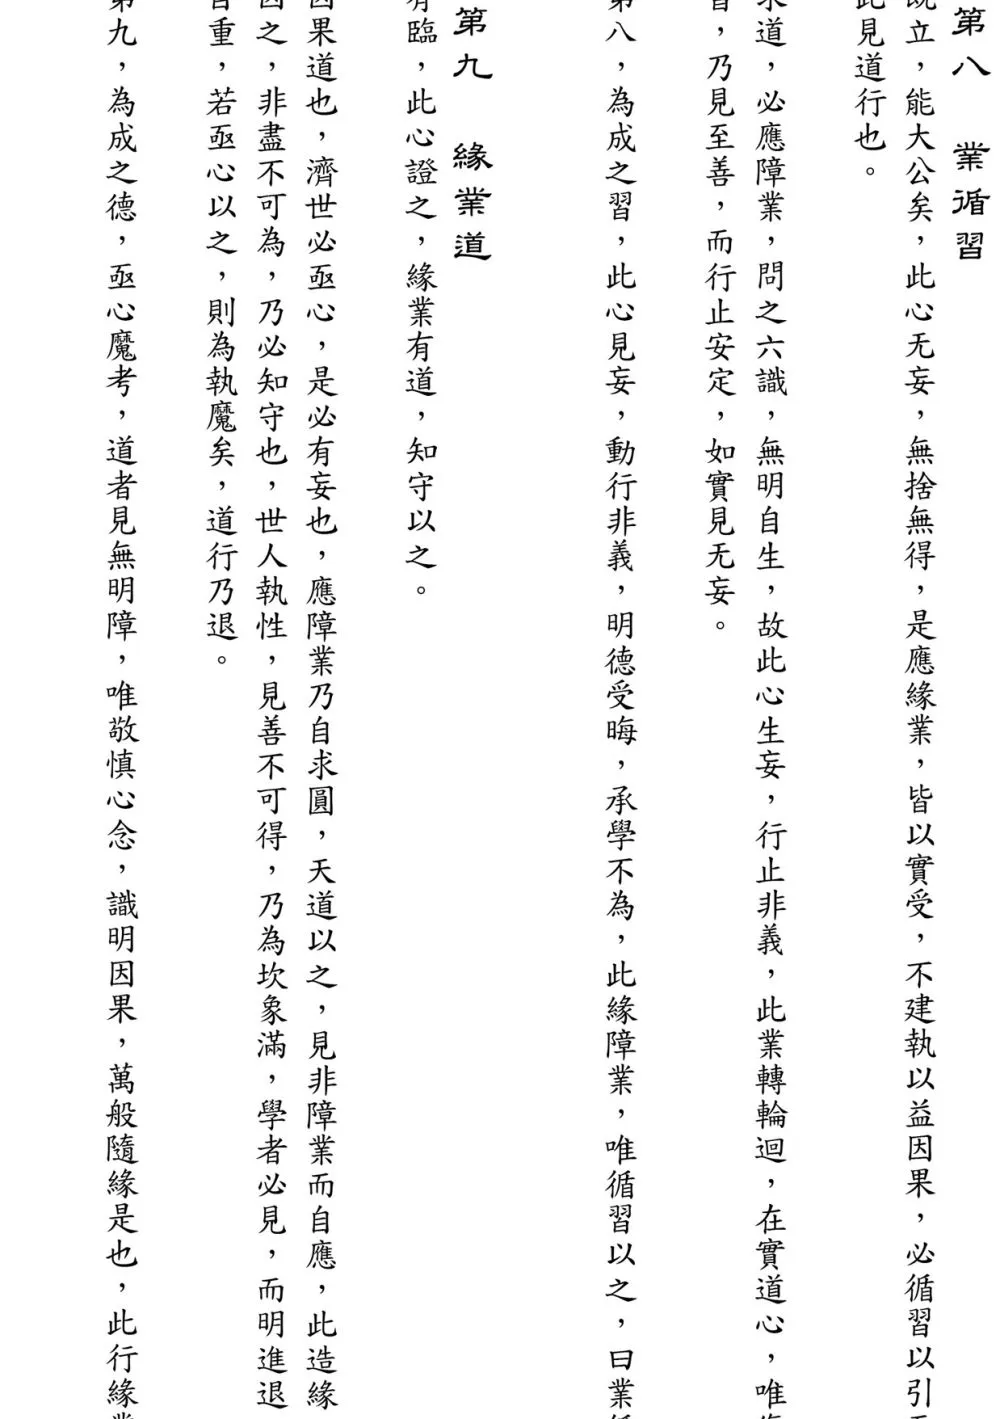 第八　業循習
既立，能大公矣，此心无妄，無捨無得，是應緣業，皆以實受，不建執以益因果，必循習以引
此見道行也。
求道，必應障業，問之六識，無明自生，故此心生妄，行止非義，此業轉輪迴，在實道心，唯
習，乃見至善，而行止安定，如實見无妄。
第八，為成之習，此心見妄，動行非義，明德受晦，承學不為，此緣障業，唯循習以之，曰業循
第九　緣業道
有臨，此心證之，緣業有道，知守以之。
因果道也，濟世必亟心，是必有妄也，應障業乃自求圓，天道以之，見非障業而自應，此造緣
因之，非盡不可為，乃必知守也，世人執性，見善不可得，乃為坎象滿，學者必見，而明進退
自重，若亟心以之，則為執魔矣，道行乃退。
第九，為成之德，亟心魔考，道者見無明障，唯敬慎心念，識明因果，萬般隨緣是也，此行緣業